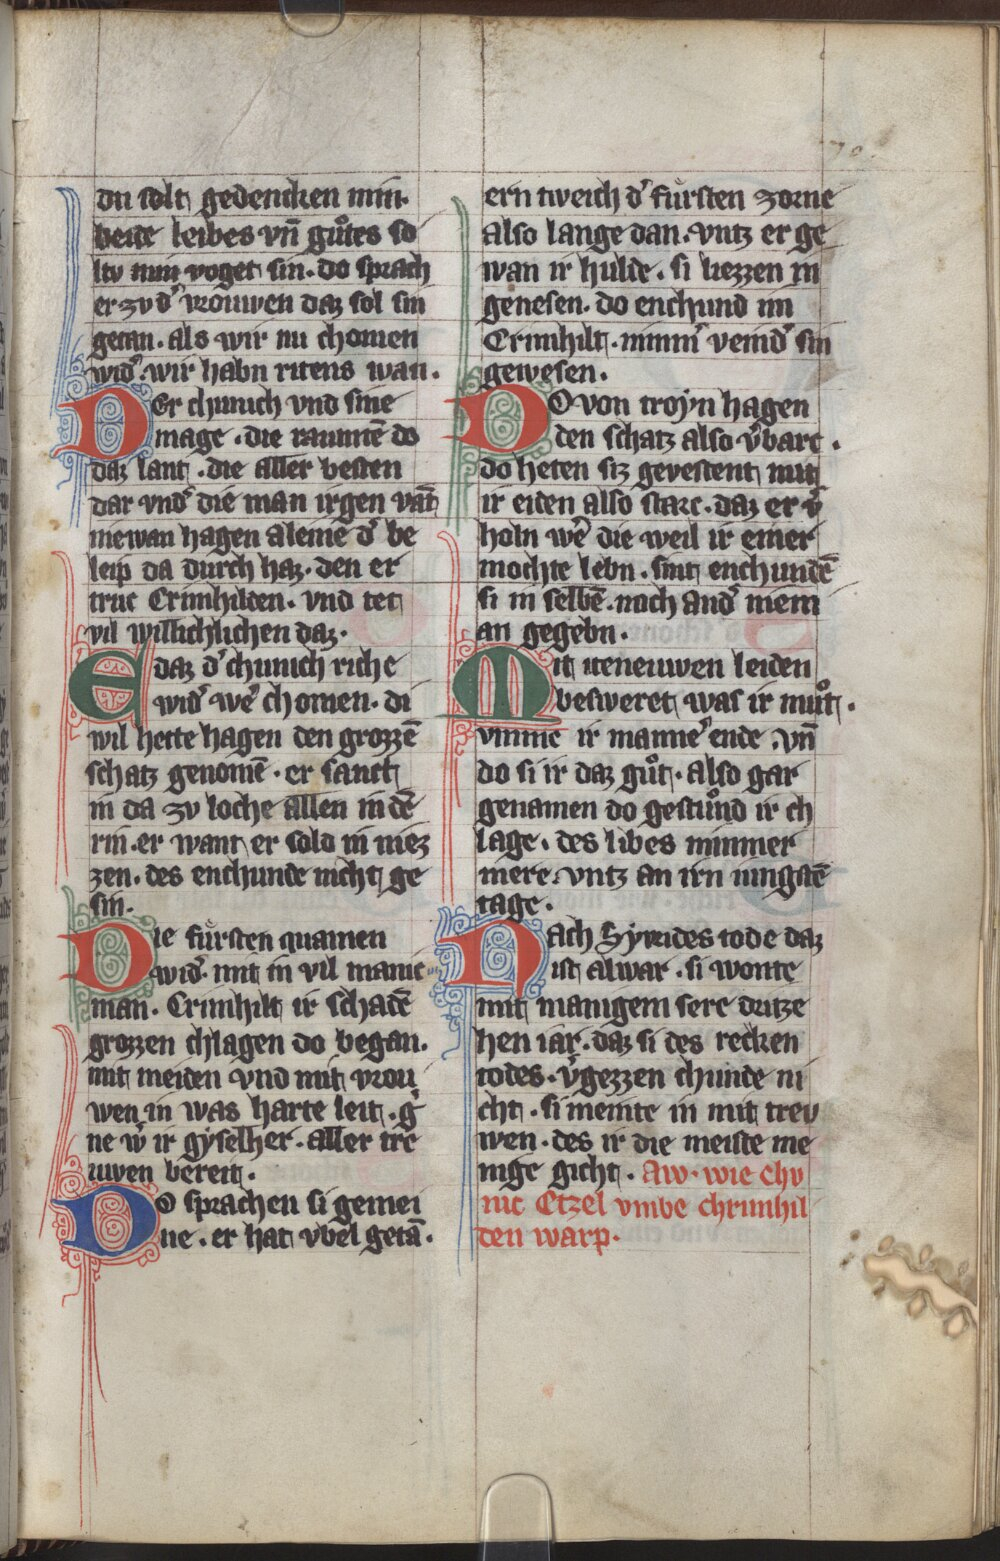 du solt gedencken min.
beide leibes vn̄ gůtes so
ltu min voget sin. do sprach
er zv d͛ vrouwen daz sol sin
getan. als wir nu chomen
wid͛. wir habn ritens wan.
Der chunich vnd sine
mage. die raumtē do
daz lant. die aller besten
dar vnd͛ die man irgen vāt
niewan hagen aleine d͛ be
leip da durch haz. den er
truc Crimhilden. vnd tet
vil willichlichen daz.
E daz d͛ chunich riche
wid͛ we͛ chomen. di
wil hette hagen den grozzē
schatz genomē. er sanct
in da zv loche allen in dē
rin. er want er sold in niez
zen. des enchunde nicht ge
sin.
Die fůrsten quamen
wid͛. mit in vil manic
man. Crimhilt ir schadē
grozzen chlagen do began.
mit meiden vnd mit vrou
wen in was harte leit. g͛
ne w͛ ir gyselher. aller tre
uwen bereit.
Do sprachen si gemei
ne. er hat vbel getā.
70.
ern tweich d͛ fůrsten zorne
also lange dan. vntz er ge
wan ir hulde. si liezzen in
genesen. do enchund im
Crimhilt. nimm͛ veind͛ sin
gewesen.
Do von troyn hagen
den schatz also v͛barc.
do heten siz gevestent mit
ir eiden also starc. daz er v͛
holn we͛ die weil ir einer
mochte lebn. sint enchundē
si in selbē. noch and͛ niem
an gegebn.
Mit iteneuwen leiden
besweret was ir můt.
vmme ir manne͛ ende. vn̄
do si ir daz gůt. also gar
genamen do gestůnd ir ch
lage. des libes nimmer
mere. vntz an irn iungstē
tage.
Nach Syvrides tode daz
ist alwar. si wonte
mit manigem sere dritze
hen iar. daz si des recken
todes. v͛gezzen chunde ni
cht. si meinte in mit trev
wen. des ir die meiste me
nige gicht. Aw. wie chv
nic Etzel vmbe chrimhil
den warp.